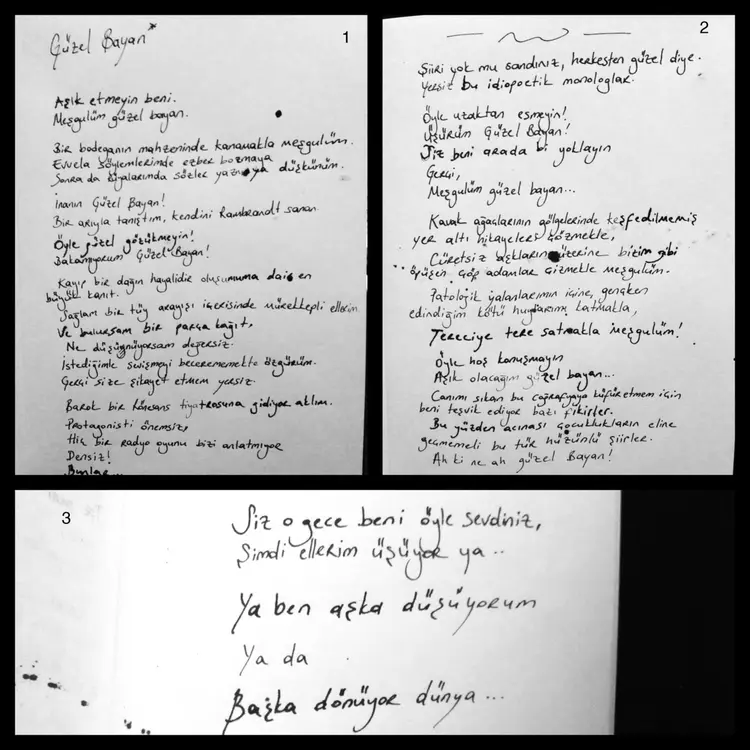 1
Güzel Bayan*
Aşık etmeyin beni.
Meşgulüm güzel bayan.
Bir bodeganın mahzeninde kanamakla meşgulüm.
Evvela söylemlerimde ezber bozmaya
Sonra da rüyalarımda sözler yazmaya düşkünüm.
İnanın Güzel Bayan!
Bir arıyla tanıştım, kendini Rambrandt sanan
Öyle güzel gözükmeyin!
Bakamıyorum Güzel Bayan!
Kayıp bir dağın hayalidir oluşumuma dair en
büyük kanıt.
Sağlam bir tüy arayışı içerisinde mürekkepli ellerim
Ve bulursam bir parça kağıt,
Ne düşünüyorsam değersiz.
İstediğimle sevişmeyi becerememekte özgürüm.
Gerçi size şikayet etmem yersiz.
Barok bir Rönesans tiyatrosuna gidiyor aklım.
Protagonisti önemsiz,
Hiç bir radyo oyunu bizi anlatmıyor
Densiz!
Bunlar...
2
Şiiri yok mu sandınız, herkesten güzel diye.
Yersiz bu idiopoetik monologlar.
Öyle uzaktan esmeyin!
Üşürüm Güzel Bayan!
Siz beni arada bi yoklayın
Gerçi,
Meşgulüm güzel bayan...
Kavak ağaçlarının gölgelerinde keşfedilmemiş
yer altı hikayeleri çözmekle,
Cüretsiz aşkların üzerine bizim gibi
öpüşen çöp adamlar çizmekle meşgulüm.
Patolojik yalanlarımın içine, gençken
edindiğim kötü huylarımı katmakla,
Tereciye tere satmakla meşgulüm!
Öyle hoş konuşmayın
Aşık olacağım güzel bayan...
Canımı sıkan bu coğrafyaya küfür etmem için
beni teşvik ediyor bazı fikirler.
Bu yüzden acınası çocuklukların eline
geçmemeli bu tür hüzünlü şiirler.
Ah ki ne ah güzel Bayan!
3
Siz o gece beni öyle sevdiniz,
Şimdi ellerim üşüyor ya..
Ya ben aşka düşüyorum
Ya da
Başka dönüyor dünya...